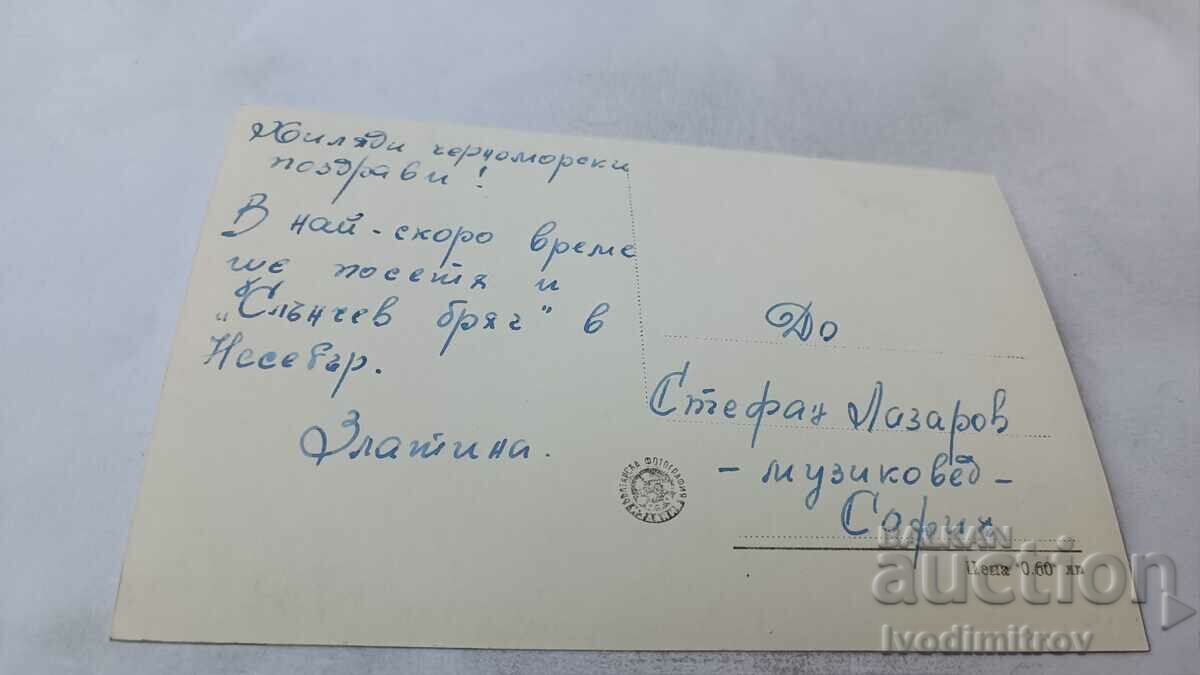 Хиляди черноморски
поздрави!
В най-скоро време
ще посетя и
"Слънчев бряг" в
Несебър.
Златина.
До
Стефан Лазаров
- музиковед -
София
БЪЛГАРСКА ФОТОГРАФИЯ
Цена 0.60 лв
BALKAN
auction
Ivodimitrov